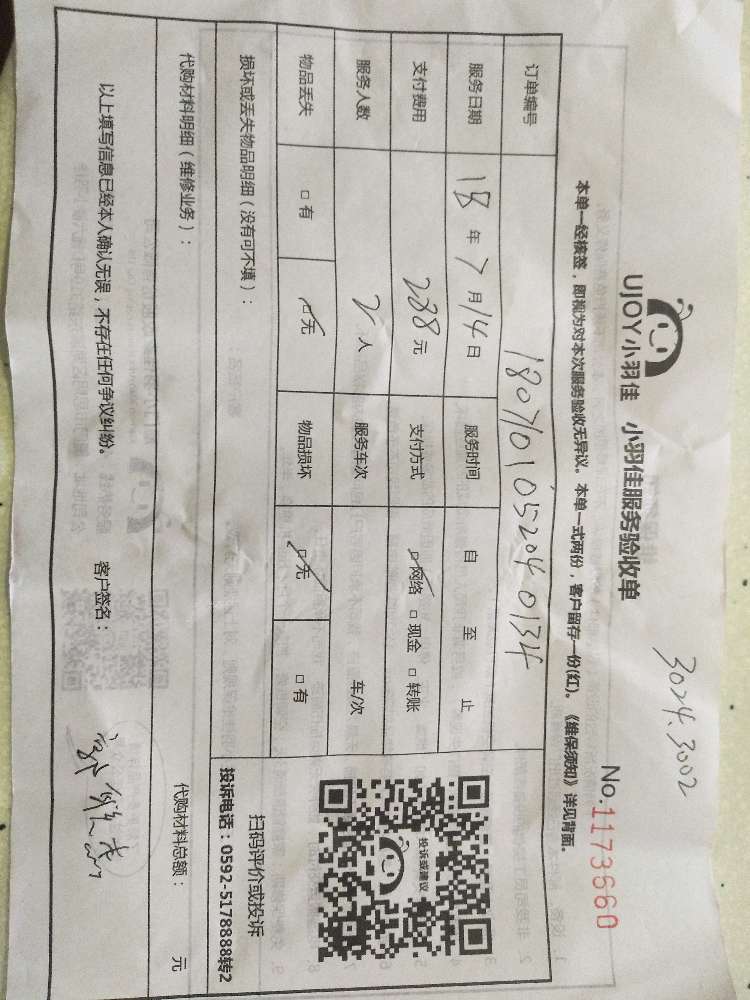 3024.3002
UJOY小羽佳 小羽佳服务验收单
No.1173660
本单一经核签，即视为对本次服务验收无异议。本单一式两份，客户留存一份(红)。《维保须知》详见背面。
订单编号 180701052040134
服务日期 18年7月14日 服务时间 自 至 止
支付费用 288元 支付方式 □网络 □现金 □转账
服务人数 2人 服务车次 车/次
物品丢失 □有 □无 物品损坏 □无 □有
投诉或建议
扫码评价或投诉
投诉电话：0592-5178888转2
损坏或丢失物品明细（没有可不填）：
代购材料明细（维修业务）： 代购材料总额： 元
以上填写信息已经本人确认无误，不存在任何争议纠纷。 客户签名：